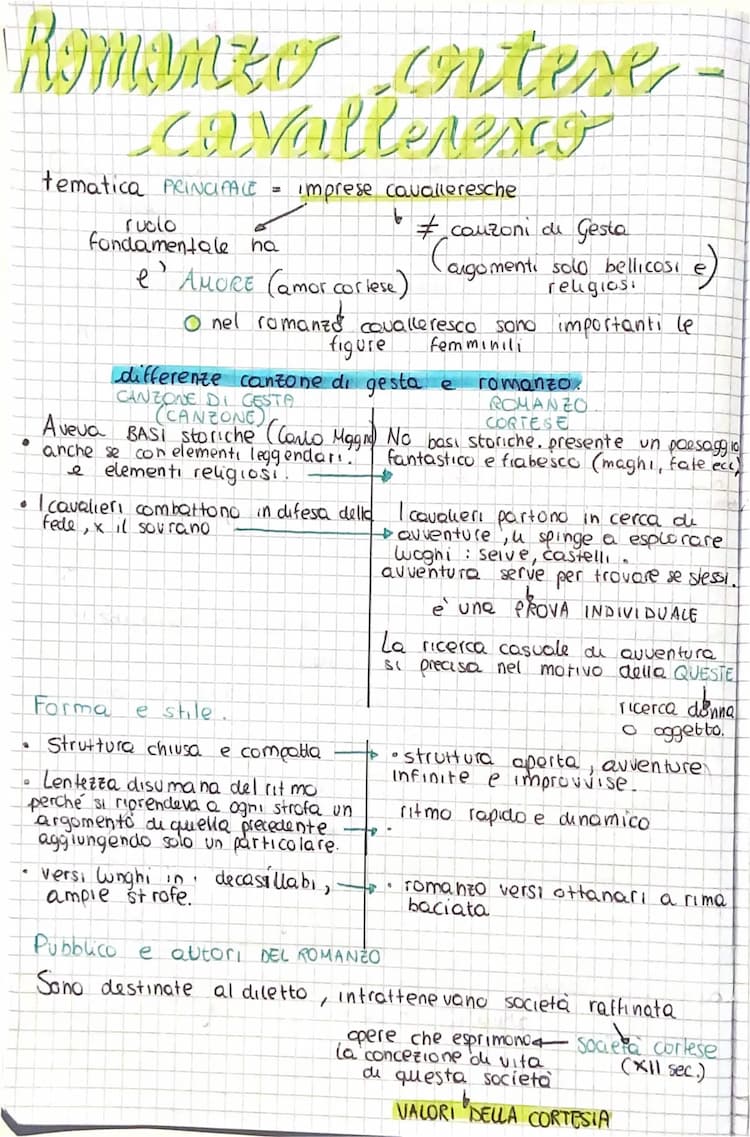 Romanzo cortese-
cavalleresco
tematica PRINCIPALE = imprese cavalleresche
ruolo
fondamentale ha
≠ canzoni di Gesta
(argomenti solo bellicosi e
religiosi)
e' AMORE (amor cortese)
nel romanzo cavalleresco sono importanti le
figure femminili
differenze canzone di gesta e romanzo.
CANZONE DI GESTA
(CANZONE)
• Aveva BASI storiche (Carlo Magno)
anche se con elementi leggendari.
e elementi religiosi.
• I cavalieri combattono in difesa della
fede, x il sovrano
ROMANZO
CORTESE
No basi storiche. presente un paesaggio
fantastico e fiabesco (maghi, fate ecc)
I cavalieri partono in cerca di
avventure, li spinge a esplorare
luoghi: selve, castelli.
avventura serve per trovare se stessi.
è una PROVA INDIVIDUALE
La ricerca casuale di avventura
si precisa nel motivo della QUESTE
ricerca donna
o oggetto.
Forma e stile.
• Struttura chiusa e compatta
• Lentezza disumana del ritmo
perché si riprendeva a ogni strofa un
argomento di quella precedente
aggiungendo solo un particolare.
• versi lunghi in decasillabi,
ampie strofe.
• struttura aperta, avventure
infinite e improvvise.
• ritmo rapido e dinamico
• romanzo versi ottanari a rima
baciata
Pubblico e autori DEL ROMANZO
Sono destinate al diletto, intrattenevano società raffinata
società cortese
(XII sec.)
opere che esprimono
la concezione di vita
di questa società
VALORI DELLA CORTESIA